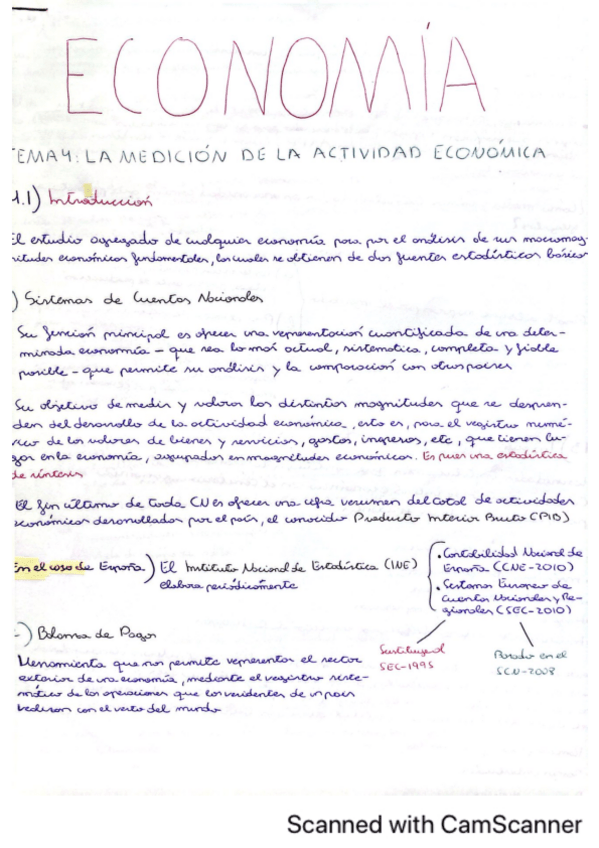 ECONOMÍA
EMA 4: LA MEDICIÓN DE LA ACTIVIDAD ECONÓMICA
1.1) Introducción
El estudio agregado de cualquier economía pasa por el análisis de sus macromag-
nitudes económicas fundamentales, las cuales se obtienen de dos fuentes estadísticas básicas
) Sistemas de Cuentas Nacionales
Su función principal es ofrecer una representación cuantificada de una deter-
minada economía - que sea lo más actual, sistemática, completa y fiable
posible - que permite su análisis y la comparación con otros países
Su objetivo de medir y valorar las distintas magnitudes que se despren-
den del desarrollo de la actividad económica, esto es, para el registro numé-
rico de los valores de bienes y servicios, gastos, ingresos, etc, que tienen lu-
gar en la economía, agrupados en magnitudes económicas. Es pues una estadística
de síntesis
El fin último de toda CN es ofrecer una cifra resumen del total de actividades
económicas desarrolladas por el país, el conocido Producto Interior Bruto (PIB)
En el caso de España) El Instituto Nacional de Estadística (INE)
elabora periódicamente
• Contabilidad Nacional de
España (CCNE-2010)
• Sistema Europeo de
Cuentas Nacionales y Re-
gionales (SEC-2010)
Sustituye al
SEC-1995
Basado en el
SCN-2008
-) Balanza de Pagos
Herramienta que nos permite representar el sector
exterior de una economía, mediante el registro siste-
mático de las operaciones que los residentes de un país
realizan con el resto del mundo
Scanned with CamScanner